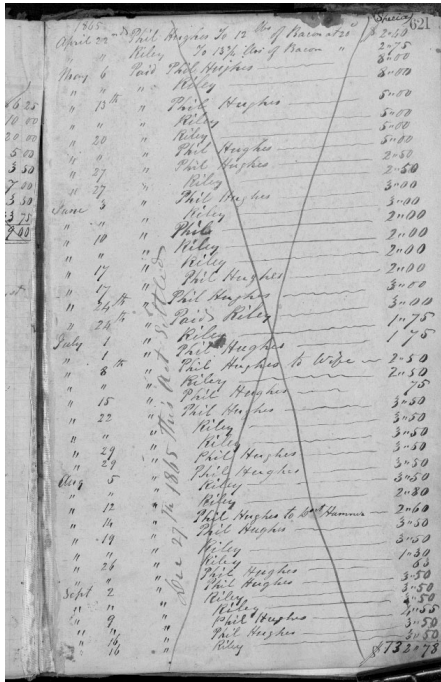 1865 Specie 621
April 22nd Phil Hughes To 12 lbs of Bacon at 20 $2"40
" " Riley To 13¾ lbs of Bacon " 2"75
May 6 Paid Phil Hughes 8"00
" " " Riley 8"00
" 13th " Phil Hughes 5"00
" " " Riley 5"00
" 20 " Riley 5"00
" " " Phil Hughes 5"00
" 27 " Phil Hughes 2"50
" 27 " Riley 2"50
June 3 " Phil Hughes 3"00
" " " Riley 3"00
" 10 " Phil 2"00
" " Riley 2"00
" " Riley 2"00
" 17 " Phil Hughes 2"00
" 17 " Phil Hughes 3"00
" 24th " Paid Riley 3"00
" 24th " Riley 1"75
July 1 " Phil Hughes 1"75
" 1 " Phil Hughes to Wife 2"50
" 8th " Riley 2"50
" " " Phil Hughes 75
" 15 " Phil Hughes 3"50
" 22 " Riley 3"50
" " " Riley 3"50
" 29 " Phil Hughes 3"50
" 29 " Phil Hughes 3"50
Aug 5 " Riley 3"50
" " " Riley 2"80
" 12 " Phil Hughes to 2"60
" 14 " Phil Hughes 3"50
" 19 " Riley 3"50
" " " Riley 1"30
" 26 " Phil Hughes 63
" " " Phil Hughes 3"50
Sept 2 " Riley 3"50
" " " Riley
" 9 " Phil Hughes 3"50
" 16 " Phil Hughes 3"50
" 16 " Riley
Dec 27th 1865 This Act Settled
6 25
10 00
20 00
5 00
3 50
7 00
3 50
3 75
9 40